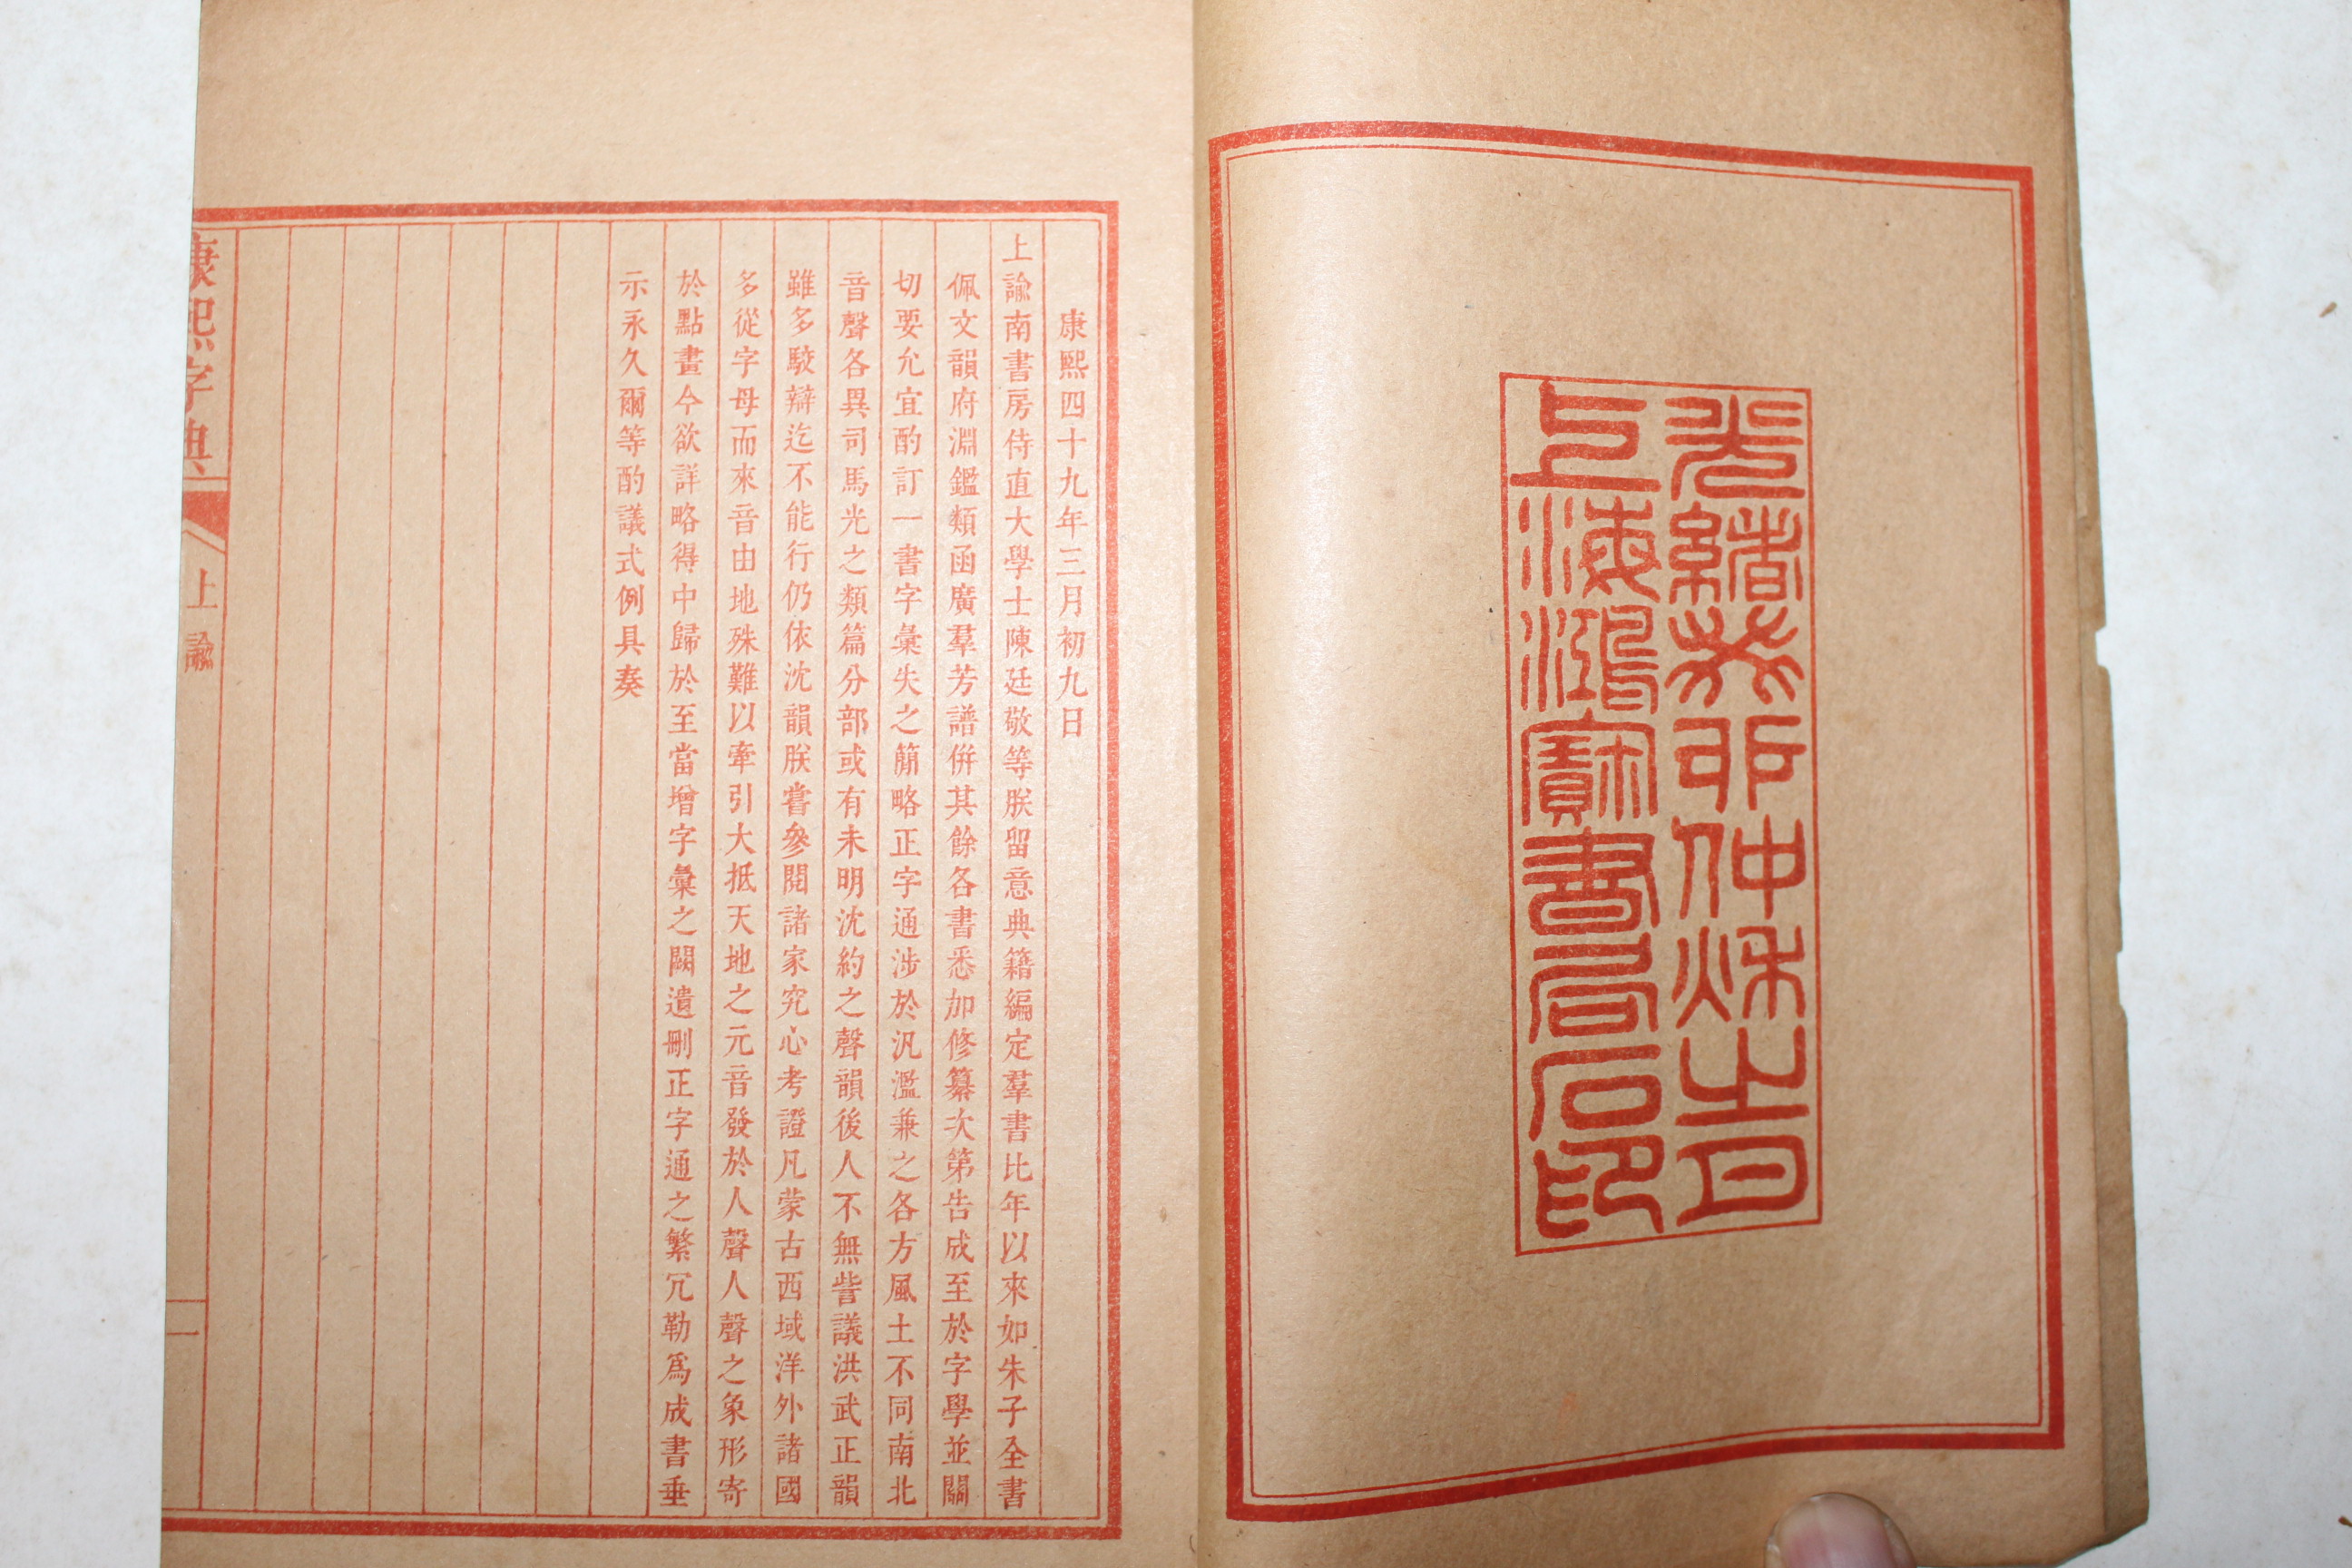 光緒癸卯仲秋之日
上海鴻寶書局石印
康熙四十九年三月初九日
上諭南書房侍直大學士陳廷敬等朕留意典籍編定羣書比年以來如朱子全書
佩文韻府淵鑑類函廣羣芳譜併其餘各書悉加修纂次第告成至於字學並關
切要允宜酌訂一書字彙失之簡略正字通涉於汎濫兼之各方風土不同南北
音聲各異司馬光之類篇分部或有未明沈約之聲韻後人不無訾議洪武正韻
雖多駮辯迄不能行仍依沈韻朕嘗參閱諸家究心考證凡蒙古西域洋外諸國
多從字母而來音由地殊難以牽引大抵天地之元音發於人聲人聲之象形寄
於點畫今欲詳略得中歸於至當增字彙之闕遺刪正字通之繁冗勒爲成書垂
示永久爾等酌議式例具奏
康熙字典
上諭
一